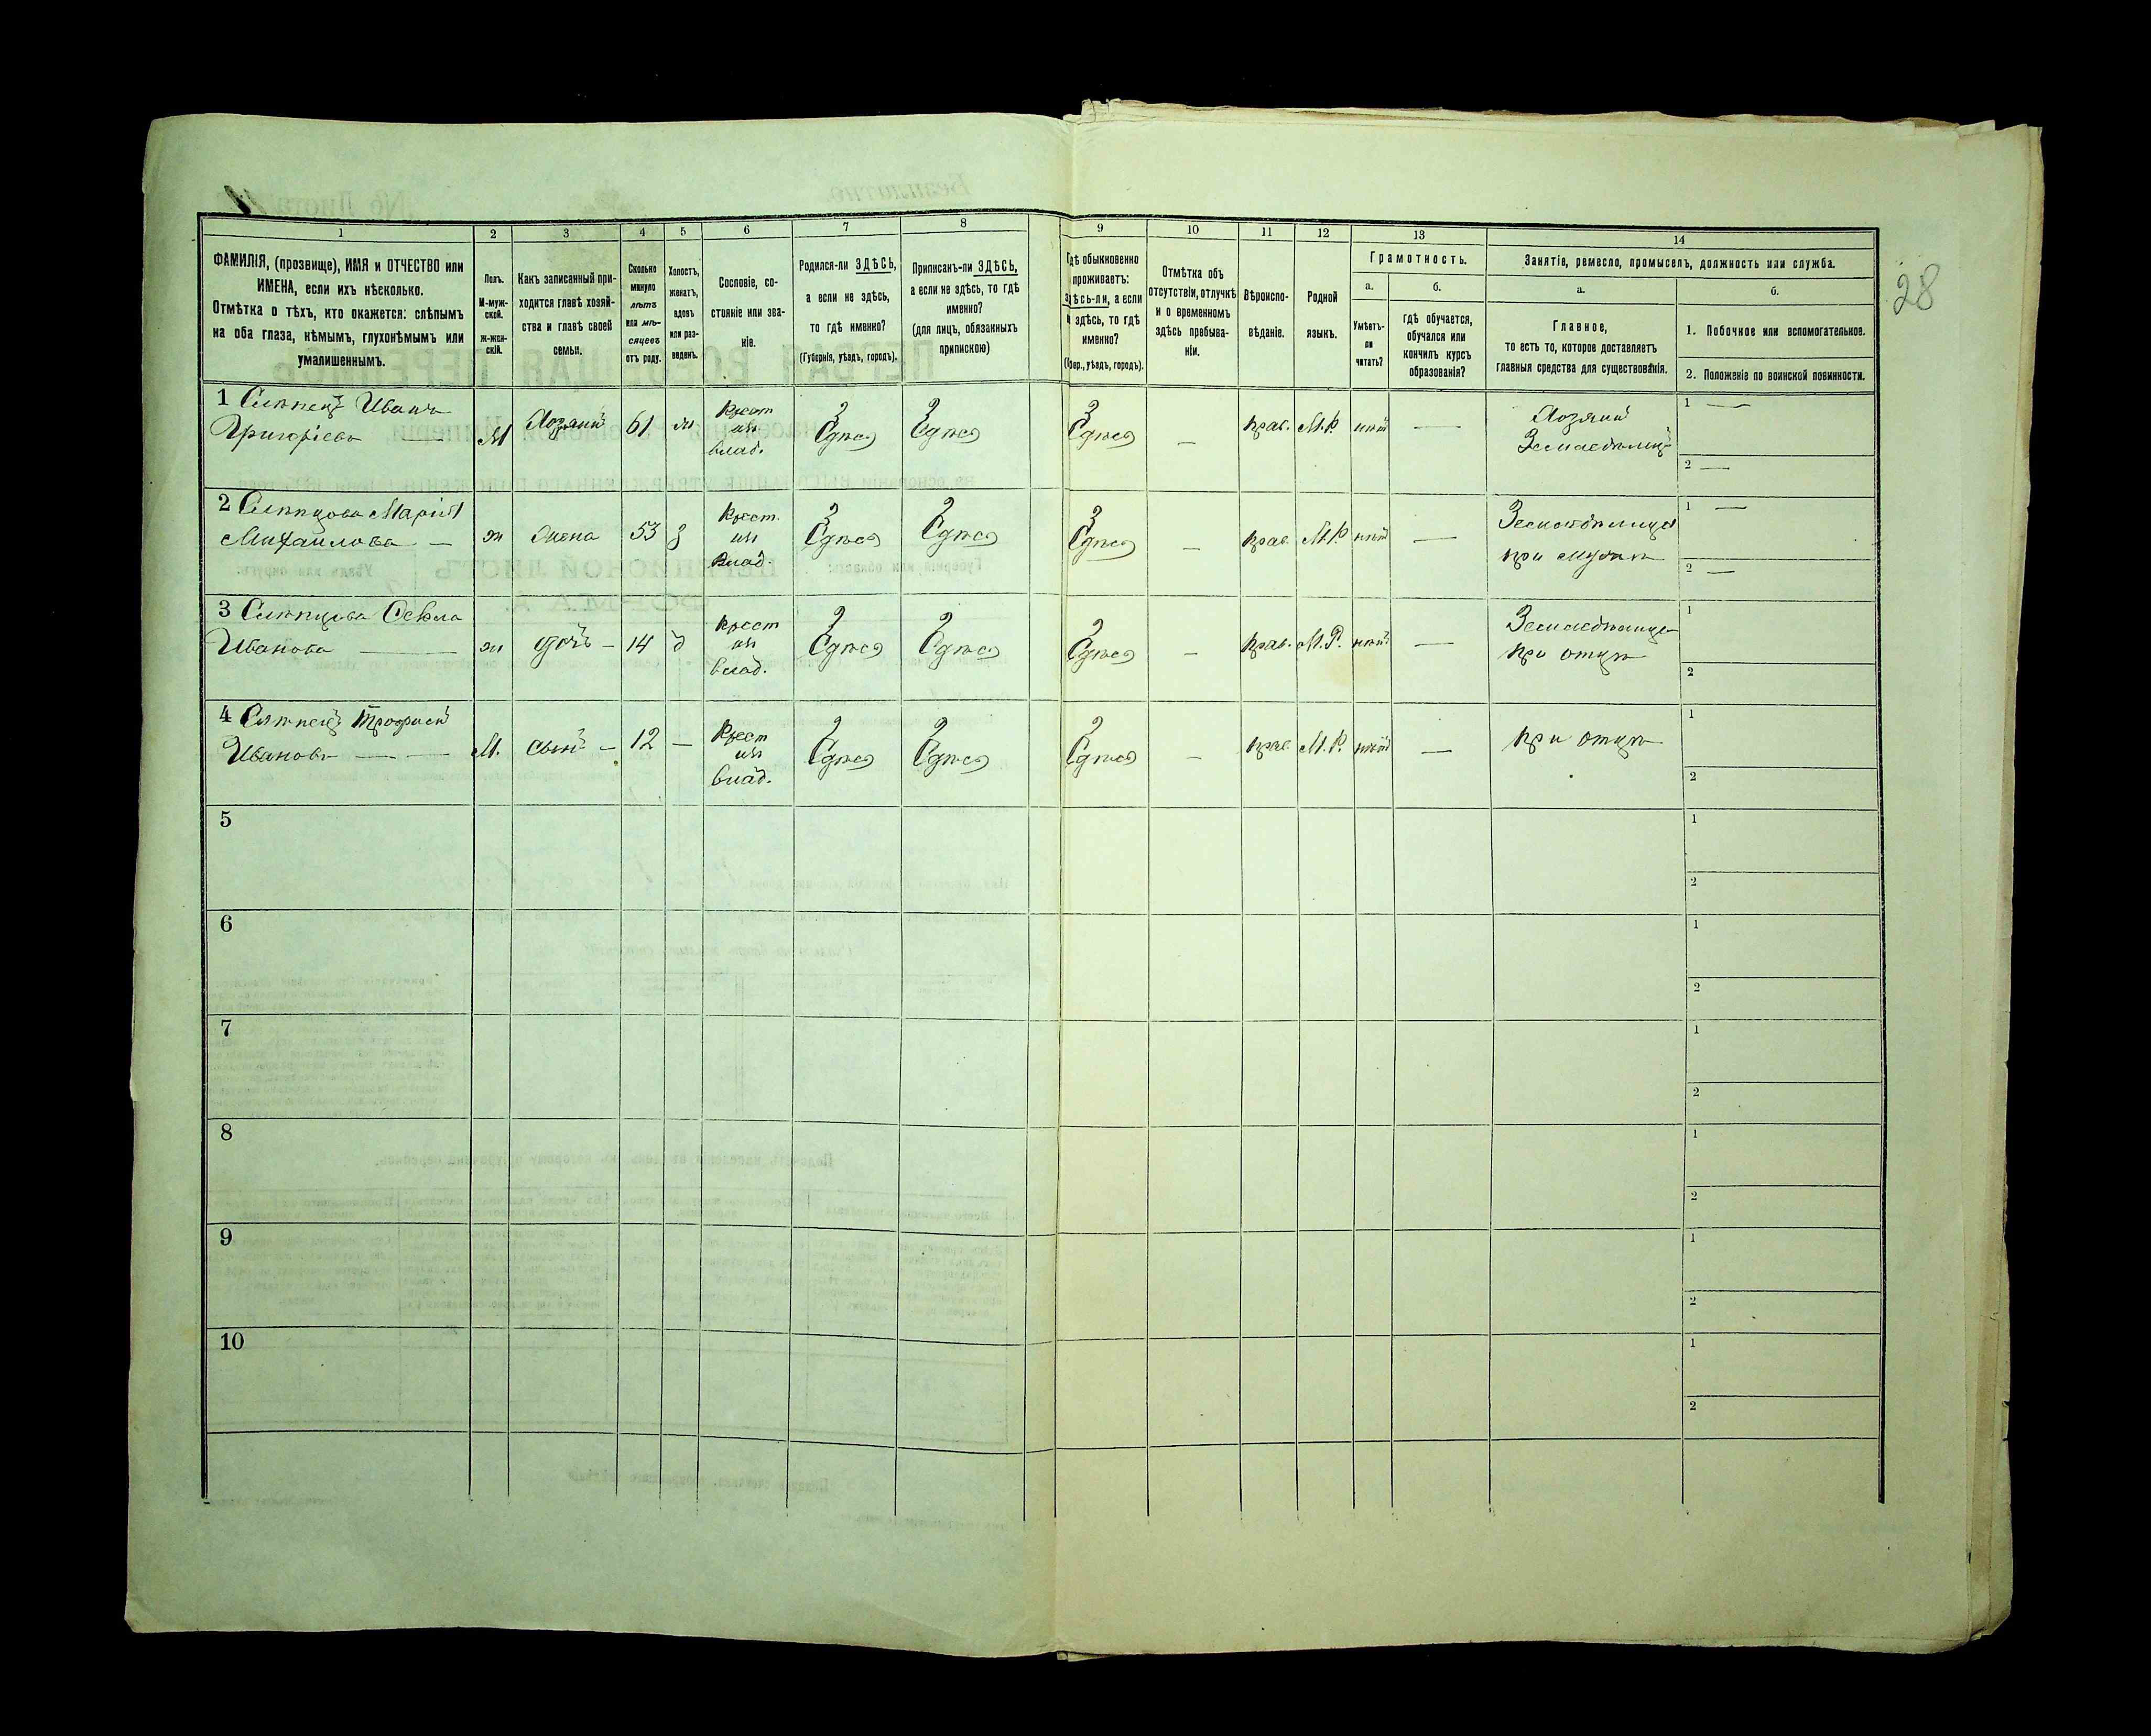 28
1 2 3 4 5 6 7 8 9 10 11 12 13 14
ФАМИЛІЯ, (прозвище), ИМЯ и ОТЧЕСТВО или
ИМЕНА, если ихъ нѣсколько.
Отмѣтка о тѣхъ, кто окажется: слѣпымъ
на оба глаза, нѣмымъ, глухонѣмымъ или
умалишеннымъ.
Полъ.
М-муж-
ской.
ж-жен-
скій.
Какъ записанный при-
ходится главѣ хозяй-
ства и главѣ своей
семьи.
Сколько
минуло
лѣтъ
или мѣ-
сяцевъ
отъ роду.
Холостъ,
женатъ,
вдовъ
или раз-
веденъ.
Сословіе, со-
стояніе или зва-
ніе.
Родился-ли ЗДѢСЬ,
а если не здѣсь,
то гдѣ именно?
(Губернія, уѣздъ, городъ).
Приписанъ-ли ЗДѢСЬ,
а если не здѣсь, то гдѣ
именно?
(для лицъ, обязанныхъ
припискою)
Гдѣ обыкновенно
проживаетъ:
здѣсь-ли, а если
не здѣсь, то гдѣ
именно?
(Губер., уѣздъ, городъ).
Отмѣтка объ
отсутствіи, отлучкѣ
и о временномъ
здѣсь пребыва-
ніи.
Вѣроиспо-
вѣданіе.
Родной
языкъ.
Грамотность.
а.
Умѣетъ-
ли
читать?
б.
гдѣ обучается,
обучался или
кончилъ курсъ
образованія?
Занятіе, ремесло, промыселъ, должность или служба.
а.
Главное,
то есть то, которое доставляетъ
главныя средства для существованія.
б.
1. Побочное или вспомогательное.
2. Положеніе по воинской повинности.
1 Слѣпецъ Иванъ
Григоріевъ — М Хозяинъ 61 ж Крест изъ влад. Здѣсь Здѣсь Здѣсь — прав. М.Р. нѣтъ — Хозяинъ
Земледѣлецъ 1 — 2 —
2 Слѣпцова Марія
Михайлова — ж жена 53 з Крест. изъ Влад. Здѣсь Здѣсь Здѣсь — прав М.Р нѣтъ — Земледѣлица
при мужѣ 1 — 2 —
3 Слѣпцова Ѳекла
Иванова — ж дочь — 14 д Крест изъ влад. Здѣсь Здѣсь Здѣсь — прав. М.Р. нѣтъ — Земледѣлица
при отцѣ 1 2
4 Слѣпецъ Трофимъ
Ивановъ — М. сынъ — 12 — Крест изъ влад. Здѣсь Здѣсь Здѣсь — прав М.Р. нѣтъ — при отцѣ 1 2
5 1 2
6 1 2
7 1 2
8 1 2
9 1 2
10 1 2